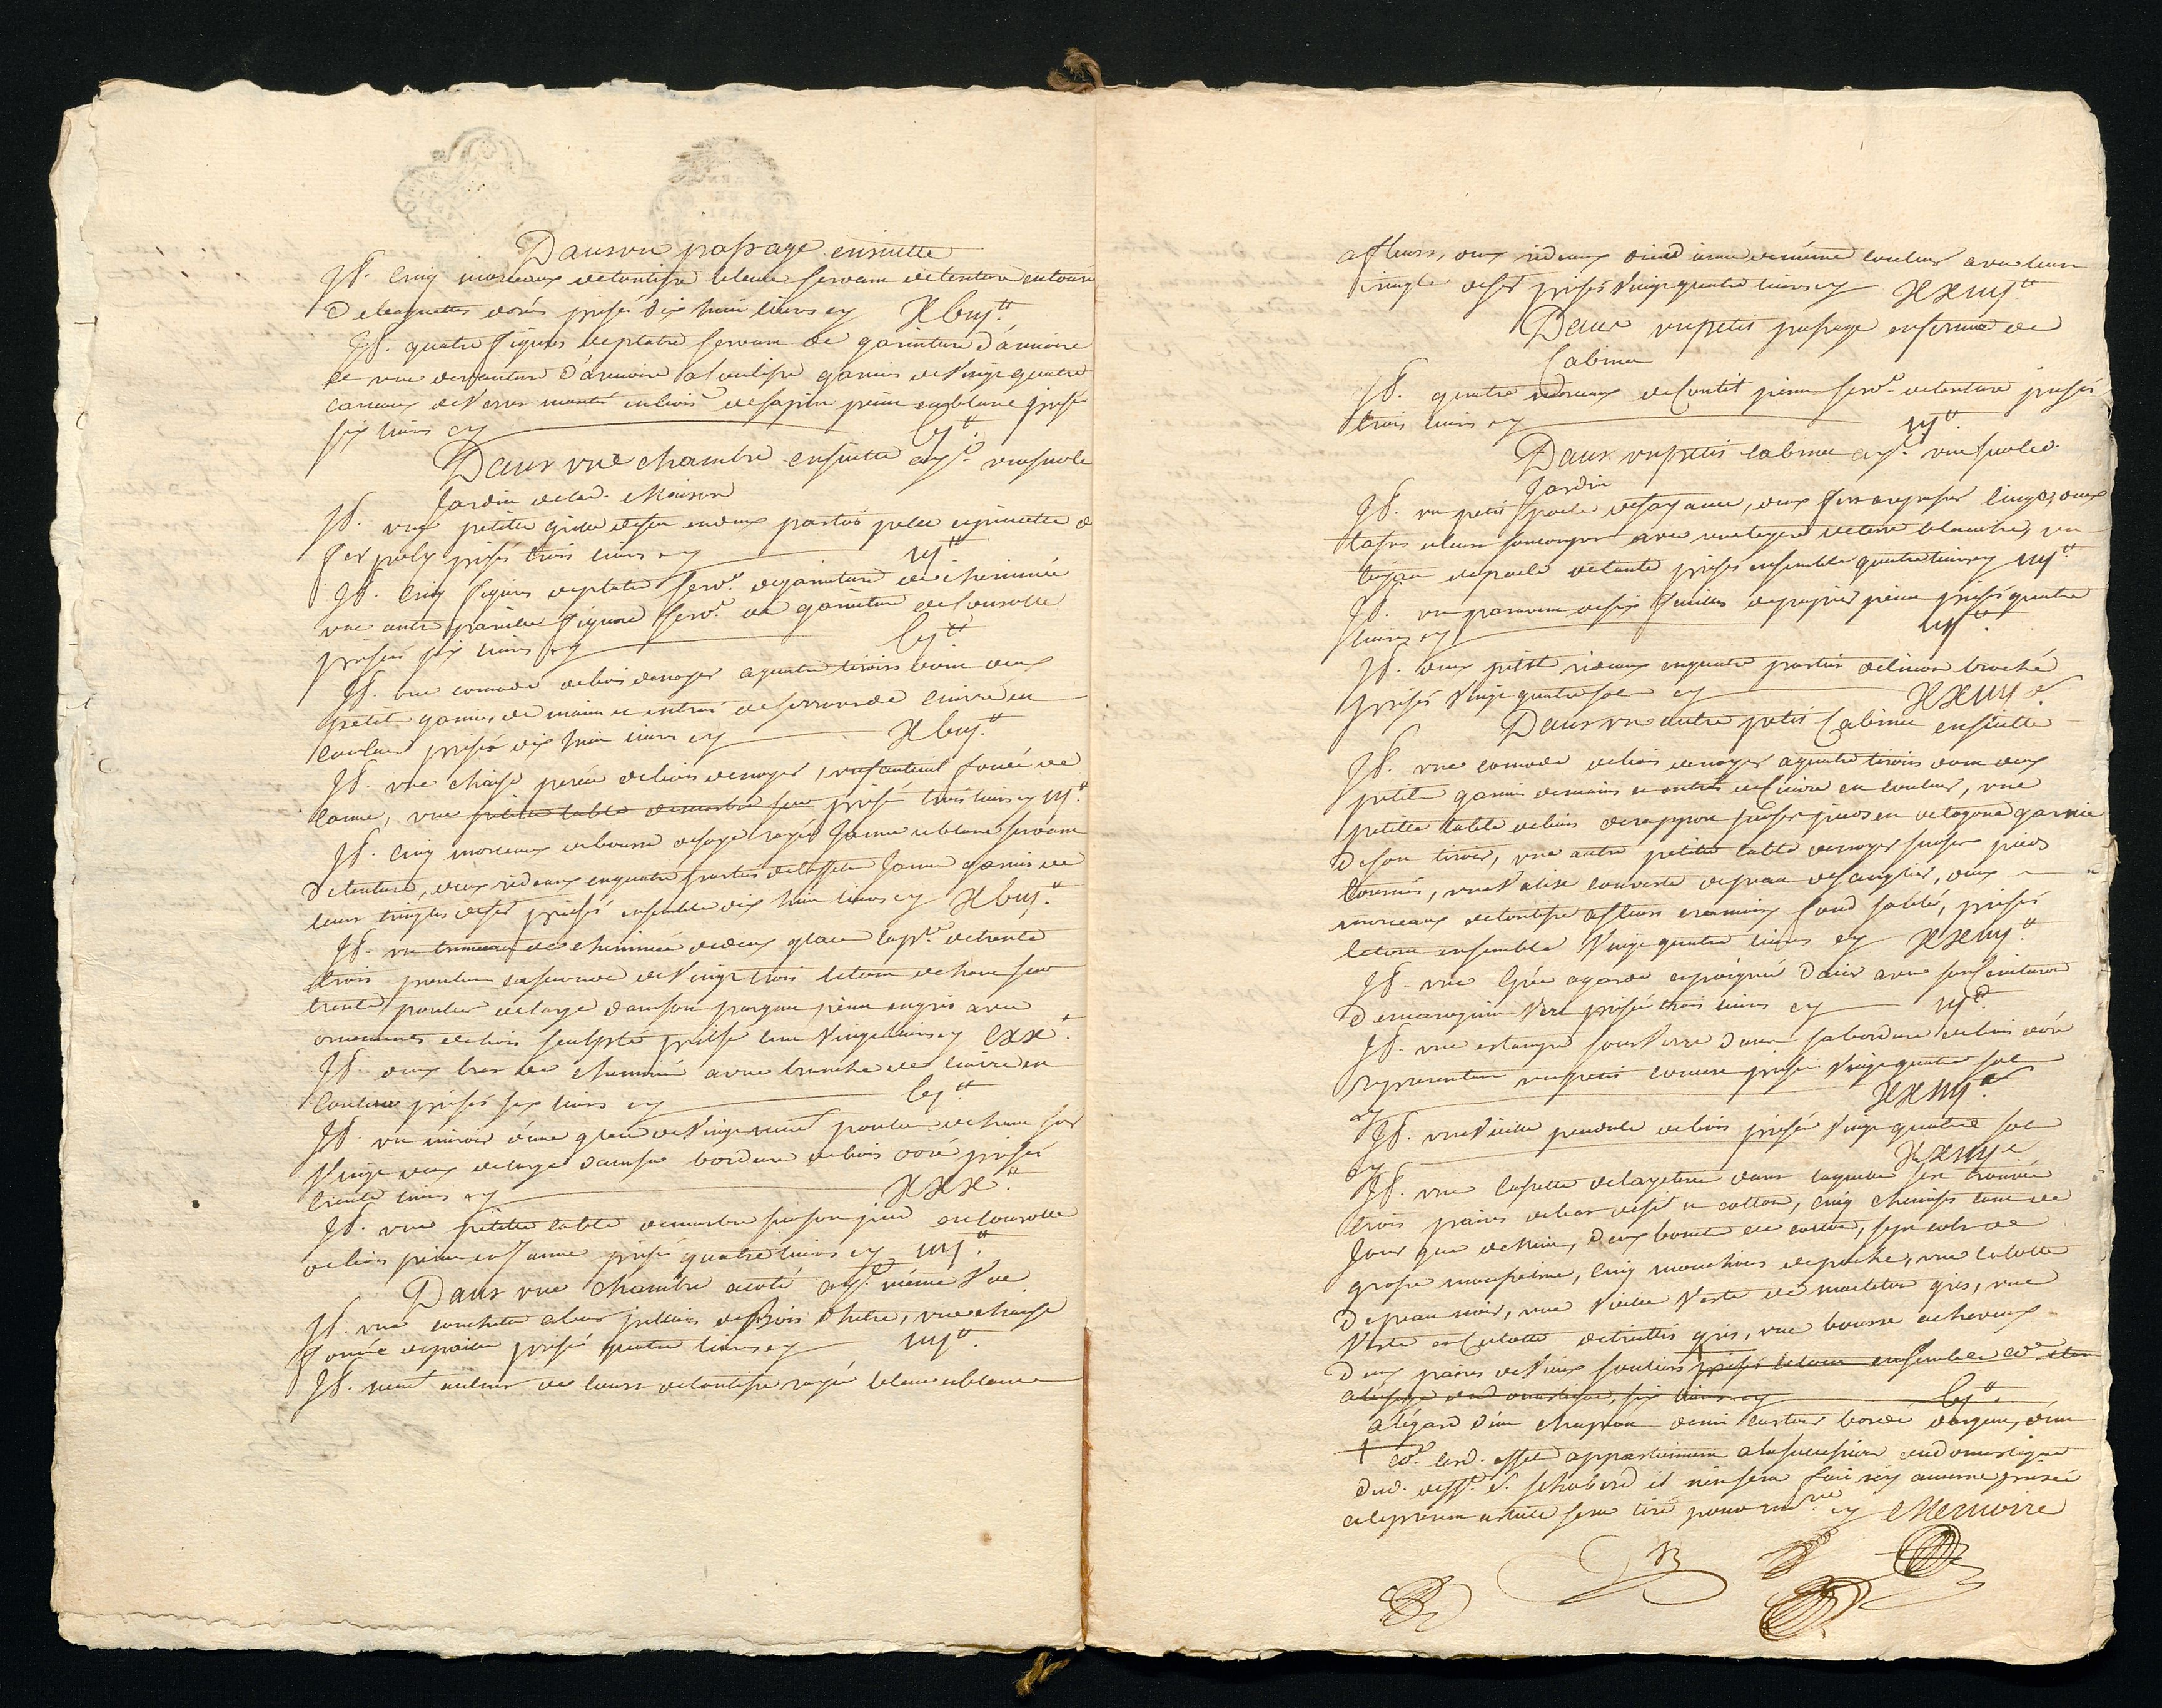 Dans un passage ensuitte
It. Cinq morceaux de tontisse bleue servant de tenture entouré
de baguettes dorés prisés dix huit livres cy xviij.tt
It. quatre figures de platre servant de garniture d'armoire
et une devanture d'armoire a coulisse garnies de vingt quatre
carreaux de verres montés en bois de sapin peint en blanc prisés
six livres cy vj.tt
Dans une chambre ensuitte ay.t vue sur le
Jardin de lad. Maison
It. une petitte grille de feu en deux parties pelle et pincette de
fer poly prisés trois livres cy iij.tt
It. Cinq figures de platre serv.t de garniture de cheminée
une autre pareille figure serv.t de garniture de consolle
prisées six livres cy vj.tt
It. une comode de bois de noyer a quatre tiroirs dont deux
petits garnies de mains et entrées de serrures de cuivre en
couleur prisée dix huit livres cy xviij.tt
It. une chaise percée de bois de noyer, un fauteuil foncé de
canne, une petitte table de marbre sur prisé trois livres cy iij.tt
It. Cinq morceaux de bourre de soye rayée Jaune et blanc servant
de tenture, deux rideaux en quatre parties de taffetas Jaune garnis de
leurs tringles de fer prisés ensemble dix huit livres cy xviij.tt
It. un trumeau de cheminée de deux glaces la p.re de trente
trois pouces la seconde de vingt trois le tout de haut sur
trente pouces de large dans son parquet peint en gris avec
ornements de bois sculpté prisé cent vingt livres cy cxx.tt
It. deux bras de cheminée a une branche de cuivre en
couleur prisés six livres cy vj.tt
It. un miroir d'une glace de vingt neuf pouces de haut sur
vingt deux de large dans sa bordure de bois doré prisés
trente livres cy xxx.tt
It. une petitte table de marbre sur son pied en consolle
de bois peint en Jaune prisée quatre livres cy iiij.tt
Dans une chambre a coté ay.t même vue
It. une couchette a bas pilliers de Bois d'hetre, une chaise
foncée de paille prisés quatre livres cy iiij.tt
It. neuf aulnes de cours de tontisse rayée bleue et blanc
a fleurs, deux rideaux d'une même couleur avec leur
tringle de fer prisés vingt quatre livres cy xxiiij.tt
Dans un petit passage en forme de
Cabinet
It. quatre morceaux de Coutil peint serv.t de tenture prisés
trois livres cy iij.tt
Dans un petit cabinet ay.t vue sur led.
Jardin
It. un petit poele de fayance, deux fers a repasser linge, deux
tasses et leurs soucoupes avec une de terre blanche, un
tuyau de poele de tole prisés ensemble quatre livres cy iiij.tt
It. un paravent de six feuilles de papier peint prisé quatre
livres cy iiij.tt
It. deux petits rideaux en quatre parties de linon broché
prisés vingt quatre sols cy xxiiij.s
Dans un autre petit Cabinet ensuitte
It. une comode de bois de noyer a quatre tiroirs dont deux
petits garnie de mains et entrées de Cuivre en couleur, une
petitte table de bois de rapport sur ses pieds en octogone garnie
de son tiroir, une autre petitte table de noyer sur ses pieds
tournés, une valise couverte de peau de sanglier, deux
morceaux de tontisse a fleurs cramoisy fond sablé, prisés
le tout ensemble vingt quatre livres cy xxiiij.tt
It. une Epée a garde et poignée d'acier avec son ceinturon
de maroquin vert prisée trois livres cy iij.tt
It. une estampe sous verre dans sa bordure de bois doré
representant un petit prisée vingt quatre sols
cy xxiiij.s
It. une vieille pendule de bois prisée vingt quatre sols
cy xxiiij.s
It. une Cassette de layeterie dans laquelle s'est trouvée
trois paires de bas de fil et cotton, Cinq chemises tant de
Jour que de Nuit, deux bonnets de cotton, sept cols de
grosse mousseline, cinq mouchoirs de poche, une culotte
de peau noir, une vieille veste de molleton gris, une
Veste et Culotte de gris, une bourse a cheveux
deux paires de vieux souliers prisés le tout ensemble
six livres cy vj.tt
a l'égard d'un chapeau demi castor bordé d'argent
lesd. effets appartiennent a la succession
dud. deff.t S. il n'en sera fait icy aucune prisée
et le present article sera tiré pour mem.re cy Memoire